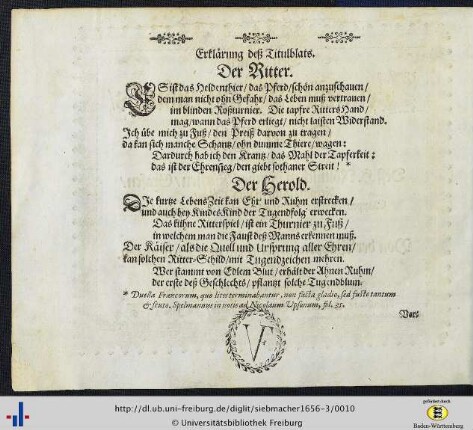 Erklärung deß Titulblats.
Der Ritter.
ES ist das Heldenthier/ das Pferd/ schön anzuschauen/
dem man nicht ohn Gefahr/ das Leben muß vertrauen/
im blinden Roßturnier. Die tapfre Ritters Hand/
mag/ wann das Pferd erligt/ nicht laisten Widerstand.
Ich übe mich zu Fuß/ den Preiß darvon zu tragen/
da kan sich manche Schantz/ ohn dumme Thiere/ wagen:
Dardurch hab ich den Krantz/ das Mahl der Tapferkeit;
das ist der Ehrensieg/ den giebt sothaner Streit! *
Der Herold.
DIe kurtze Lebens Zeit kan Ehr und Ruhm erstrecken/
und auch bey Kindes Kind der Tugendfolg erwecken.
Das kühne Ritterspiel/ ist ein Thurnier zu Fuß/
in welchem man die Faust deß Manns erkennen muß.
Der Käiser/ als die Quell und Ursprung aller Ehren/
kan solchen Ritter-Schild/ mit Tugendzeichen mehren.
Wer stammt von Edlem Blut/ erhält der Ahnen Ruhm/
der erste deß Geschlechts/ pflantzt solche Tugendblum.
* Duella Francorum, quo lites terminabantur, non fuisse gladio, sed fuste tantum
& scuto, Spelmannus in notis ad Nicolaum Uptonum, fol. 35.
Vor-
VF
http://dl.ub.uni-freiburg.de/diglit/siebmacher1656-3/0010
© Universitätsbibliothek Freiburg
gefördert durch
Baden-Württemberg